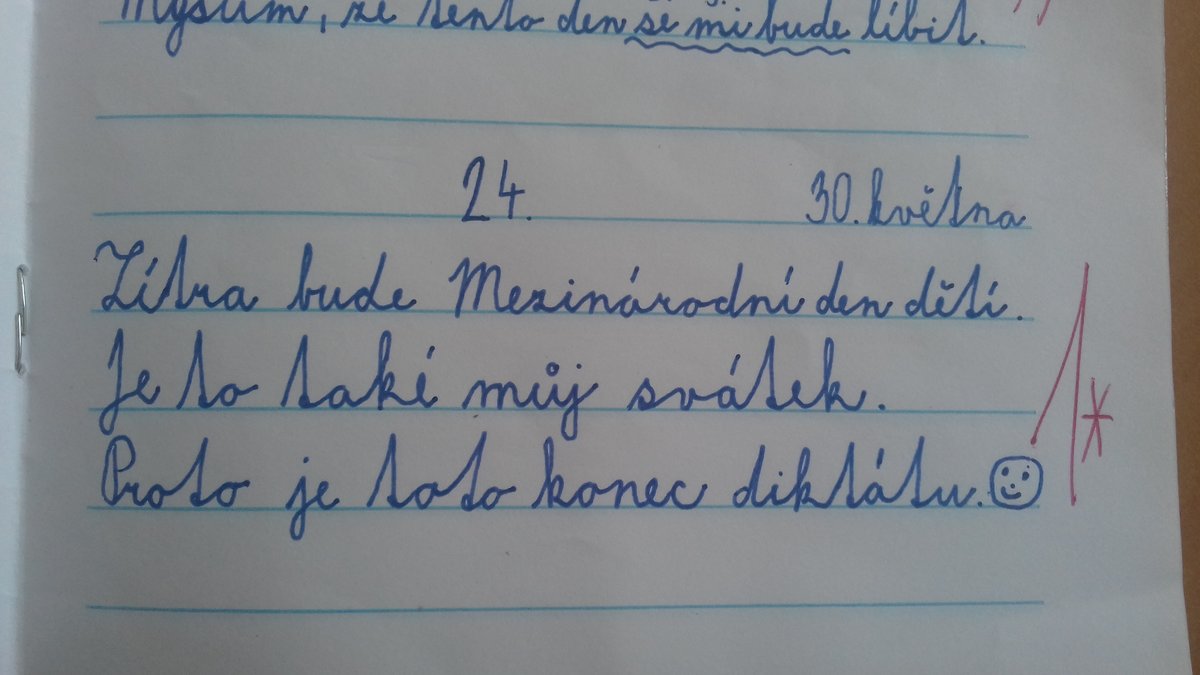 Myslím, že tento den se mi bude líbit.
24. 30. května
Zítra bude Mezinárodní den dětí.
Je to také můj svátek.
Proto je toto konec diktátu.
1*